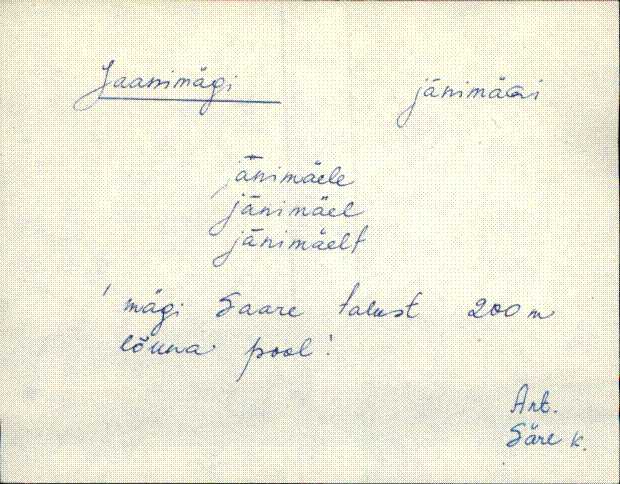 Jaanimägi jānimäGi
jānimäele
jānimäel
jānimäelt
' mägi Saare talust 200 m
lõuna pool '
Ant.
Säre k.